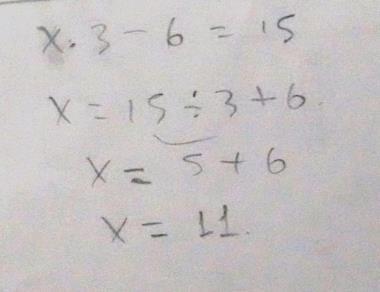 x. 3 - 6 = 15
x = 15 ÷ 3 + 6.
x = 5 + 6
x = 11.